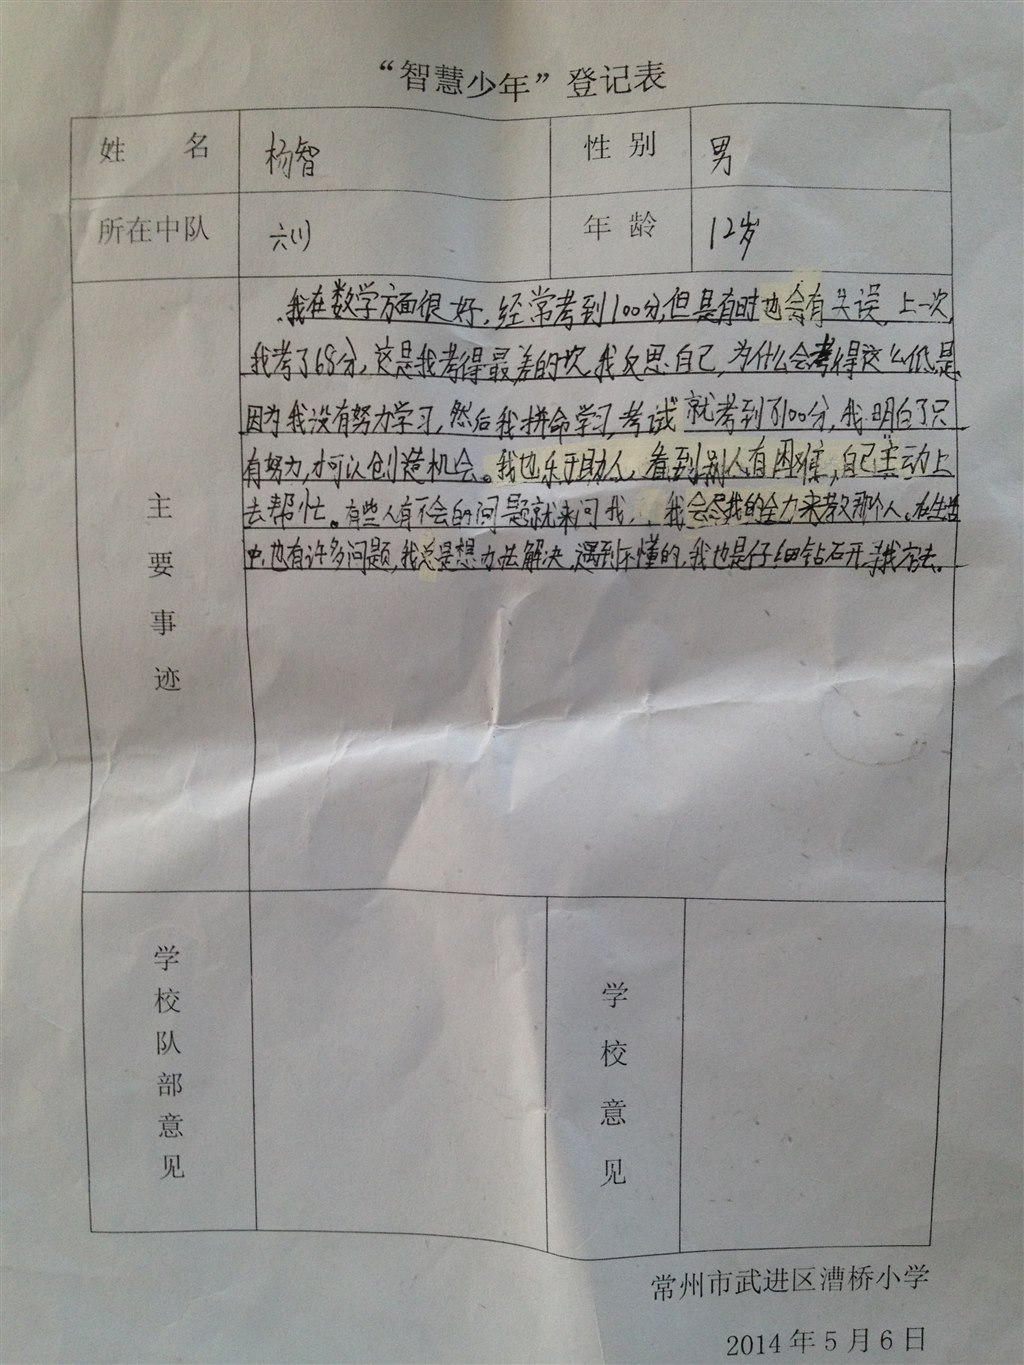 “智慧少年”登记表
姓 名 杨智 性 别 男
所在中队 六(1) 年 龄 12岁
主要事迹
我在数学方面很好,经常考到100分,但是有时也会有失误,上一次,
我考了68分,这是我考得最差的次,我反思自己,为什么会考得这么低,是
因为我没有努力学习,然后我拼命学习,考试就考到了100分,我明白了只
有努力,才可以创造机会。我也乐于助人,看到别人有困难,自己主动上
去帮忙。有些人有不会的问题就来问我,我会尽我的全力来教那个人。在生活
中,也有许多问题,我总是想办法解决,遇到不懂的,我也是仔细钻石开寻找方法。
学校队部意见
学校意见
常州市武进区漕桥小学
2014年5月6日